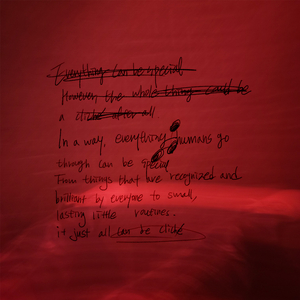 Everything can be special
However, the whole thing could be
a cliché after all
In a way, everything humans go
though can be special
From things that are recognized and
brilliant by everyone to small,
lasting little routines.
it just all can be cliché